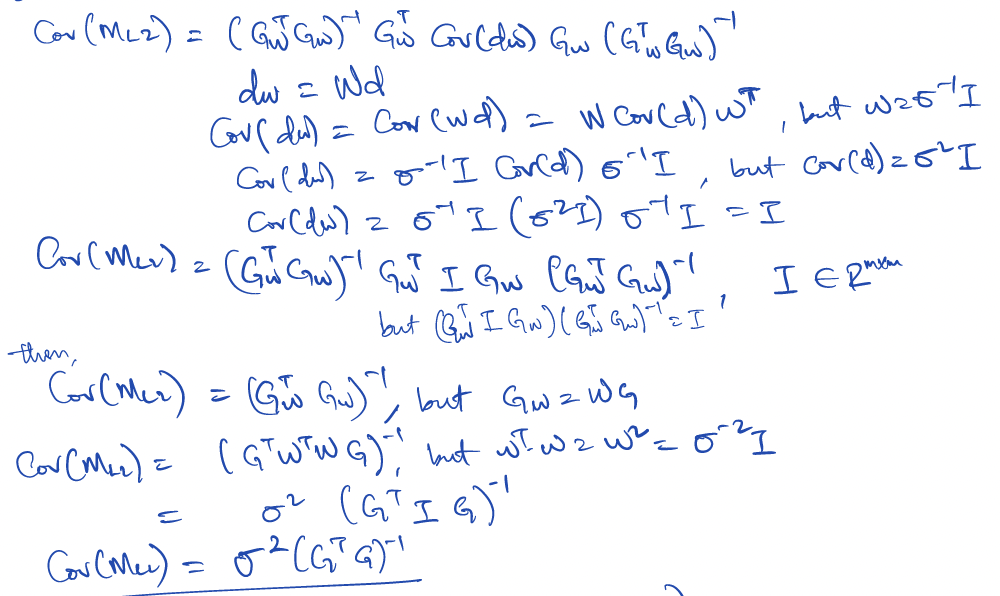 Cov(m_L2) = (G_w^T G_w)^-1 G_w^T Cov(dw) G_w (G_w^T G_w)^-1
dw = Wd
Cov(dw) = Cov(Wd) = W Cov(d) W^T, but W = σ^-1 I
Cov(dw) = σ^-1 I Cov(d) σ^-1 I, but cov(d) = σ^2 I
Cov(dw) = σ^-1 I (σ^2 I) σ^-1 I = I
Cov(m_L2) = (G_w^T G_w)^-1 G_w^T I G_w (G_w^T G_w)^-1, I ∈ R^mxm
but (G_w^T I G_w)(G_w^T G_w)^-1 = I
then,
Cov(m_L2) = (G_w^T G_w)^-1, but G_w = WG
Cov(m_L2) = (G^T W^T W G)^-1, but W^T W = W^2 = σ^-2 I
= σ^2 (G^T I G)^-1
Cov(m_L2) = σ^2 (G^T G)^-1